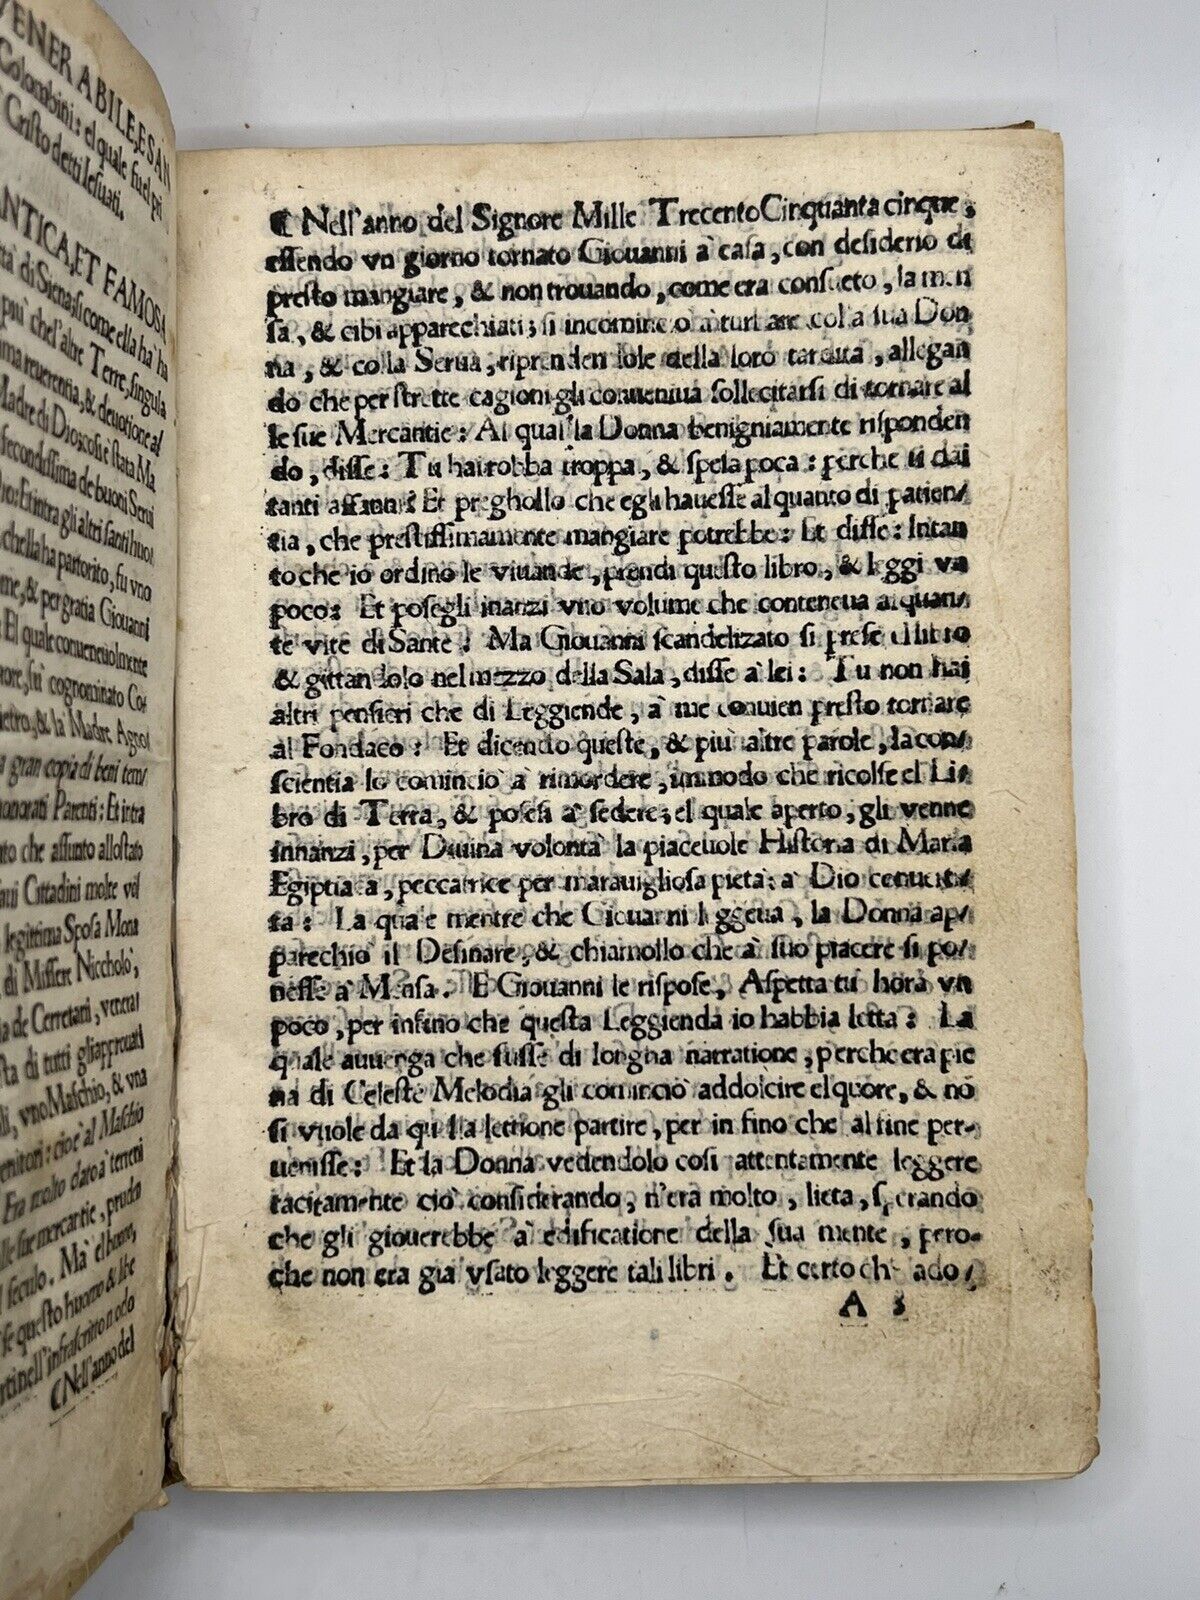 VENERABILE, E SAN
Colombini: el quale fu el pri
Cristo detti Iesuati.
ANTICA, ET FAMOSA
ttà di Siena si come ella ha ha
più chel'altre Terre, singula
ma reuerentia, & deuotione al
Madre di Dio: così è stata Ma
fecondissima de buoni Serui
Dio: Et intra gli altri santi huo/
chella ha partorito, fu vno
me, & per gratia Giouanni
: El quale conueneuolmente
ore, fu cognominato Co/
ietro, & la Madre Agno/
a gran copia di beni tem/
honorati Parenti: Et intra
to che assunto allo stato
aui Cittadini molte vol
legittima Sposa Mona
di Missere Niccholò,
ia de Cerretani, venera/
sta di tutti gli approuati
li, vno Maschio, & vna
enitori: cioè al Maschio
Era molto dato à terreni
lle sue mercatie, pruden
l seculo. Mà el buon,
se questo huomo & libe
rti nell'infrascritto modo
¶ Nell'anno del
¶ Nell'anno del Signore Mille Trecento Cinquanta cinque,
essendo vn giorno tornato Giouanni à casa, con desiderio di
presto mangiare, & non trouando, come era consueto, la men
sa, & cibi apparechiati; si incominciò à turbare colla sua Don
na, & colla Serua, riprendendole della loro tardita, allegan
do che per strette cagioni gli conueniua sollecitarsi di tornare al
le sue Mercantie: Al quale la Donna benigniamente risponden
do, disse: Tu hai robba troppa, & spesa poca: perche ti dai
tanti affanni? Et preghollo che egli hauesse alquanto di patien/
tia, che prestissimamente mangiare potrebbe: Et disse: Intan
to che io ordino le viuande, prendi questo libro, & leggi vn
poco: Et posegli inanzi vno volume che conteneua alquan/
te vite di Sante: Ma Giouanni scandelizato si prese el libro
& gittandolo nel mezzo della Sala, disse à lei: Tu non hai
altri pensieri che di Leggiende, à me conuien presto tornare
al Fondaco: Et dicendo queste, & più altre parole, la con/
scientia lo comincio à rimordere, immodo che ricolse el Li/
bro di Terra, & posesi à sedere; el quale aperto, gli venne
innanzi, per Diuina volontà la piaceuole Historia di Maria
Egiptiaca, peccatrice per marauigliosa pietà: à Dio conuerti/
ta: La quale mentre che Giouanni leggeua, la Donna ap/
parechiò il Desinare, & chiamollo che à suo piacere si po/
nesse à Mensa. E Giouanni le rispose, Aspetta tu hora vn
poco, per infino che questa Leggienda io habbia letta: La
quale auuenga che fusse di longha narratione, perche era pie
na di Celeste Melodia gli cominciò addolcire el quore, & nõ
si vuole da qulla lettione partire, per in fino che al fine per-
uenisse: Et la Donna vedendolo cosi attentamente leggere
tacitamente ciò considerando, n'era molto, lieta, sperando
che gli giouerebbe à edificatione della sua mente, pero-
che non era già vsato leggere tali libri. Et certo che ado/
A 3